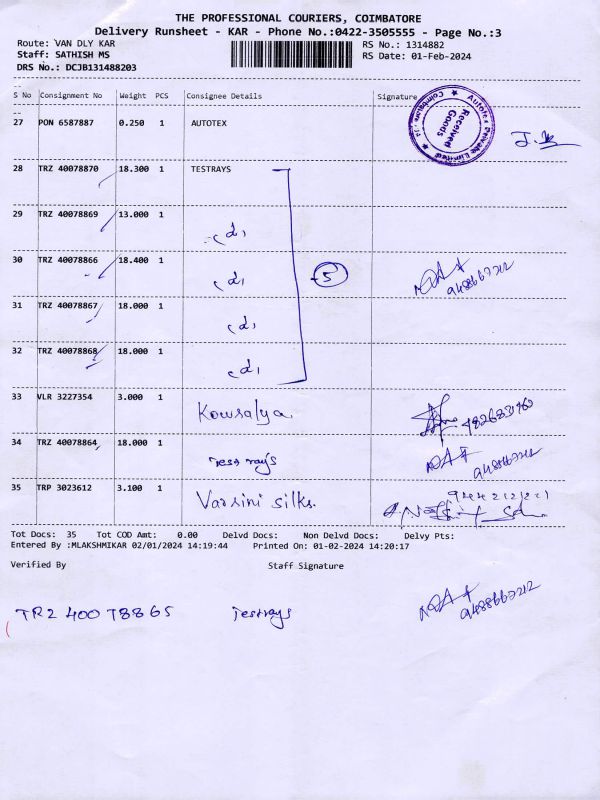 THE PROFESSIONAL COURIERS, COIMBATORE
Delivery Runsheet - KAR - Phone No.:0422-3505555 - Page No.:3
Route: VAN DLY KAR
Staff: SATHISH MS
DRS No.: DCJB131488203
RS No.: 1314882
RS Date: 01-Feb-2024
S No Consignment No Weight PCS Consignee Details Signature
27 PON 6587887 0.250 1 AUTOTEX
Autotex Private Limited ★ Coimbatore ★
Received Goods
28 TRZ 40078870 18.300 1 TESTRAYS
29 TRZ 40078869 13.000 1 (d)
30 TRZ 40078866 18.400 1 (d)
5
9488667212
31 TRZ 40078867 18.000 1 (d)
32 TRZ 40078868 18.000 1 (d)
33 VLR 3227354 3.000 1 Kowsalya
34 TRZ 40078864 18.000 1 Test rays 9488667212
35 TRP 3023612 3.100 1 Varsini silks.
Tot Docs: 35 Tot COD Amt: 0.00 Delvd Docs: Non Delvd Docs: Delvy Pts:
Entered By :MLAKSHMIKAR 02/01/2024 14:19:44 Printed On: 01-02-2024 14:20:17
Verified By Staff Signature
TRZ 400 78865 Testrays 9488667212